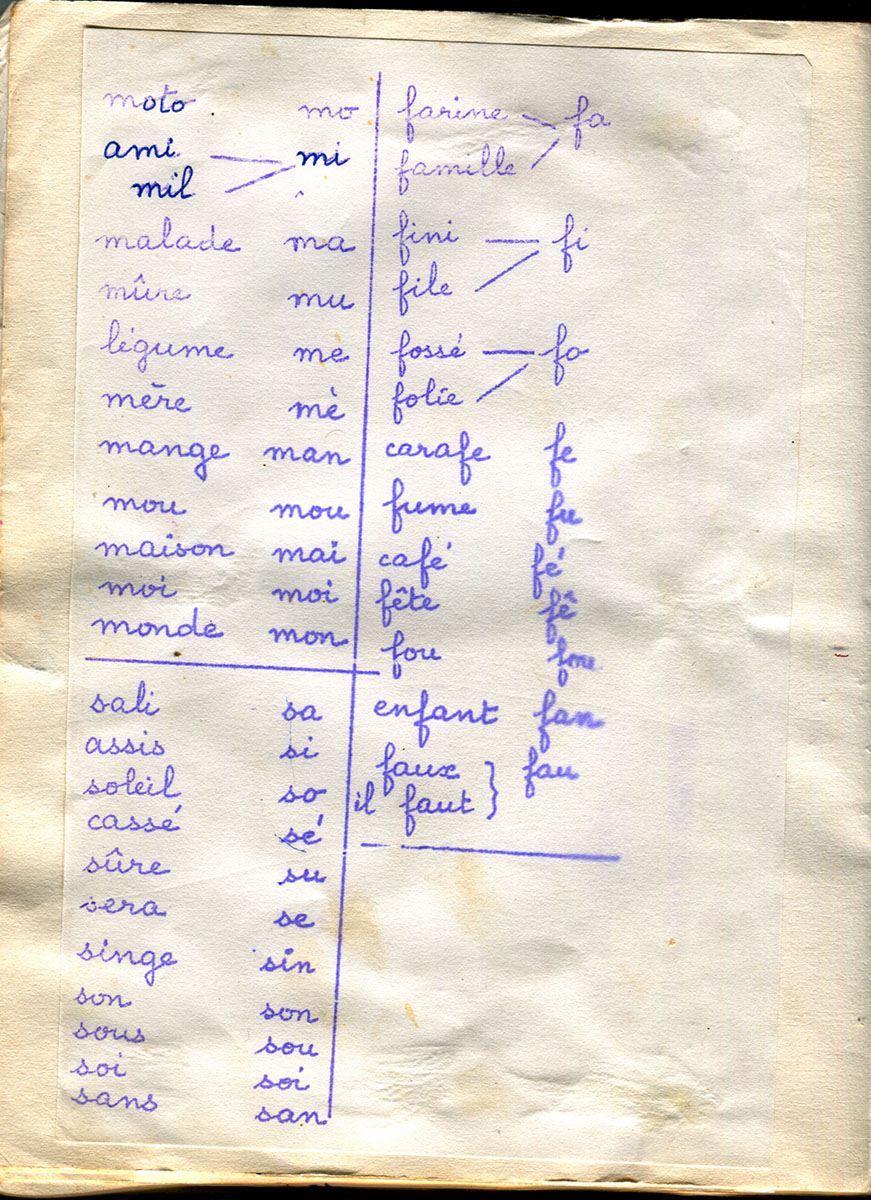 moto mo
ami mi
mil
malade ma
mûre mu
légume me
mère mè
mange man
mou mou
maison mai
moi moi
monde mon
sali sa
assis si
soleil so
cassé sé
sûre su
sera se
singe sin
son son
sous sou
soi soi
sans san
farine fa
famille
fini fi
file
fossé fo
folie
carafe fe
fume fu
café fé
fête fê
fou fou
enfant fan
faux } fau
il faut